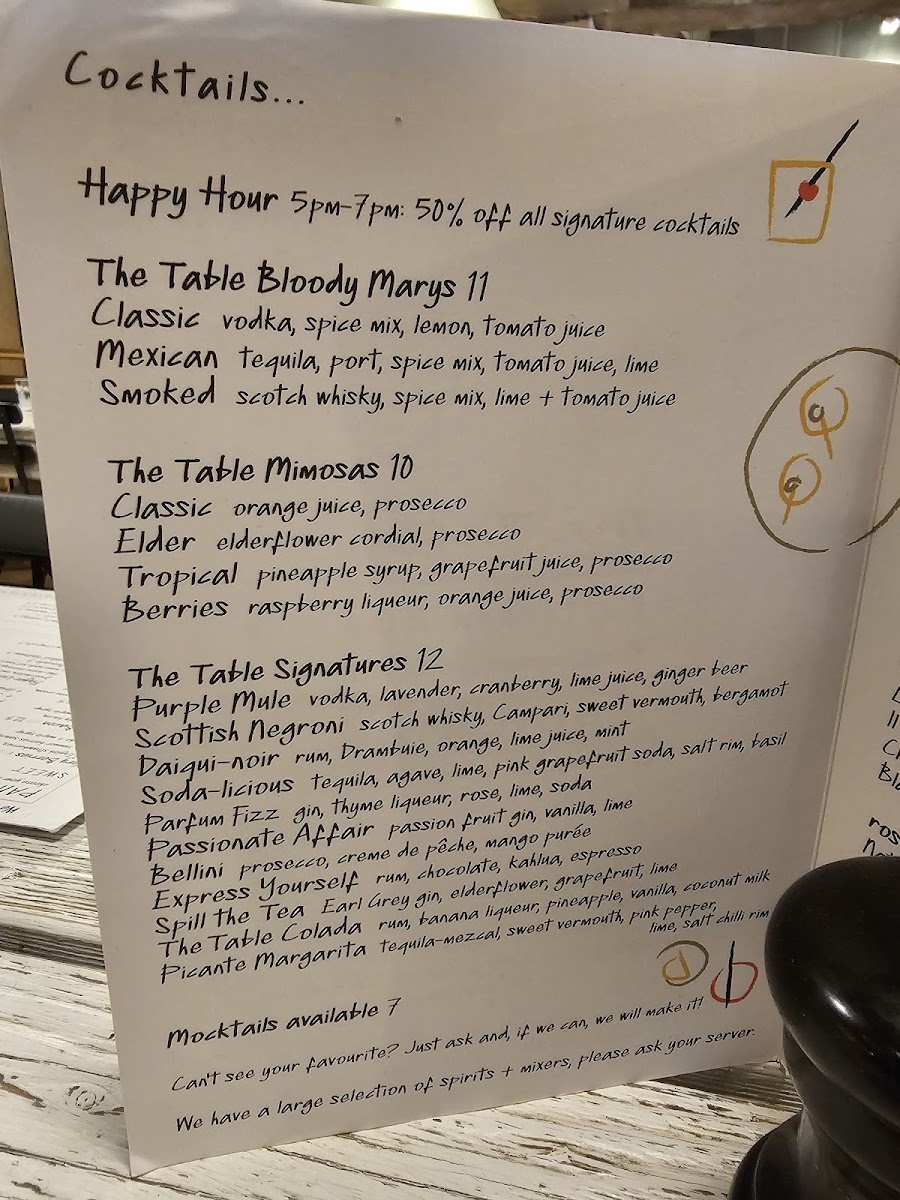 Cocktails...
Happy Hour 5pm-7pm: 50% off all signature cocktails
The Table Bloody Marys 11
Classic vodka, spice mix, lemon, tomato juice
Mexican tequila, port, spice mix, tomato juice, lime
Smoked scotch whisky, spice mix, lime + tomato juice
The Table Mimosas 10
Classic orange juice, prosecco
Elder elderflower cordial, prosecco
Tropical pineapple syrup, grapefruit juice, prosecco
Berries raspberry liqueur, orange juice, prosecco
The Table Signatures 12
Purple Mule vodka, lavender, cranberry, lime juice, ginger beer
Scottish Negroni scotch whisky, Campari, sweet vermouth, bergamot
Daiqui-noir rum, Drambuie, orange, lime juice, mint
Soda-licious tequila, agave, lime, pink grapefruit soda, salt rim, basil
Parfum Fizz gin, thyme liqueur, rose, lime, soda
Passionate Affair passion fruit gin, vanilla, lime
Bellini prosecco, creme de pêche, mango purée
Express Yourself rum, chocolate, kahlua, espresso
Spill the Tea Earl Grey gin, elderflower, grapefruit, lime
The Table Colada rum, banana liqueur, pineapple, vanilla, coconut milk
Picante Margarita tequila-mezcal, sweet vermouth, pink pepper,
lime, salt chilli rim
Mocktails available 7
Can't see your favourite? Just ask and, if we can, we will make it!
We have a large selection of spirits + mixers, please ask your server.